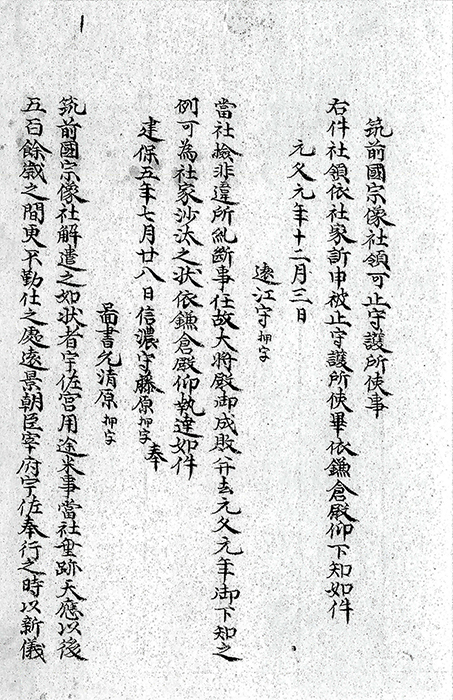 筑前國宗像社領可止守護所使事
右件社領依社家訴申被止守護所使畢依鎌倉殿仰下知如件
元久元年十二月三日
遠江守押字
當社檢非違所糺斷事任故大將殿御成敗并去元久元年御下知之
例可為社家沙汰之状依鎌倉殿仰執達如件
建保五年七月廿八日信濃守藤原押字奉
啚書允清原押字
筑前國宗像社解遣之如状者宇佐宮用途米事當社垂跡天應以後
五百餘歳之間更不勤仕之處遠景朝臣宰府宇佐奉行之時以新儀